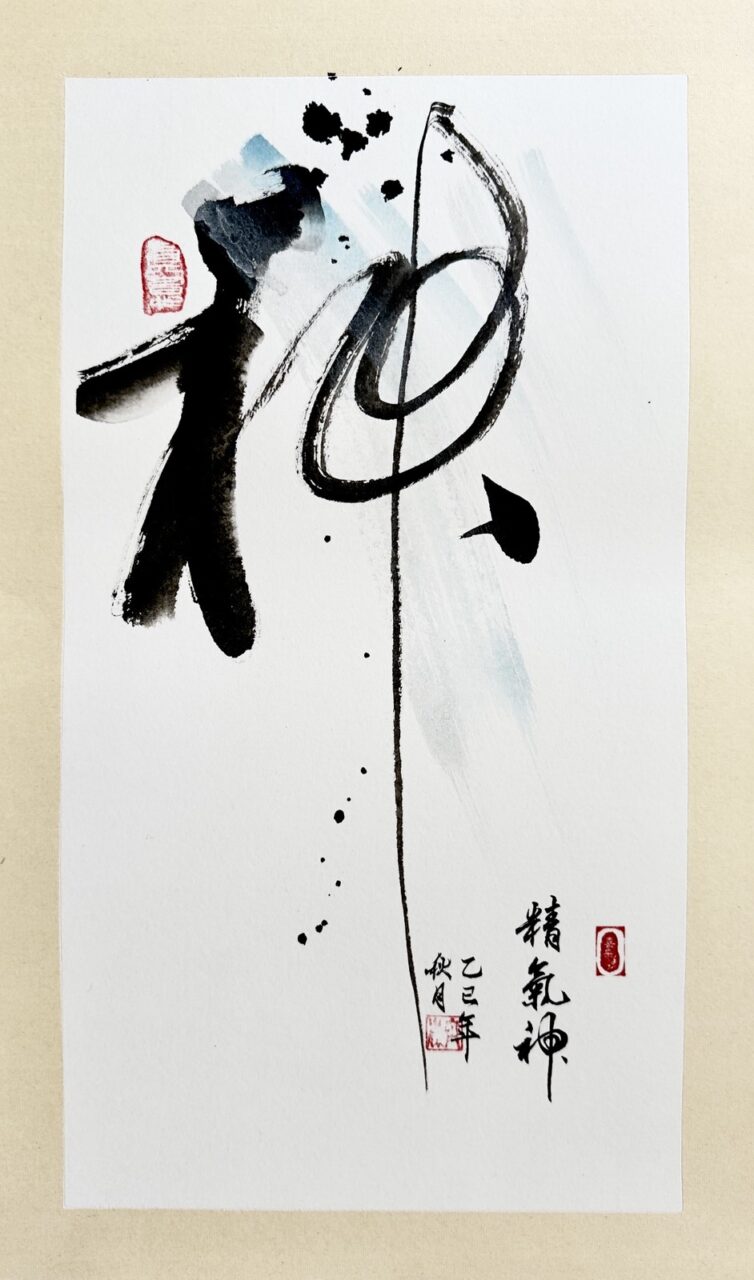 神
精氣神
乙巳年
秋月